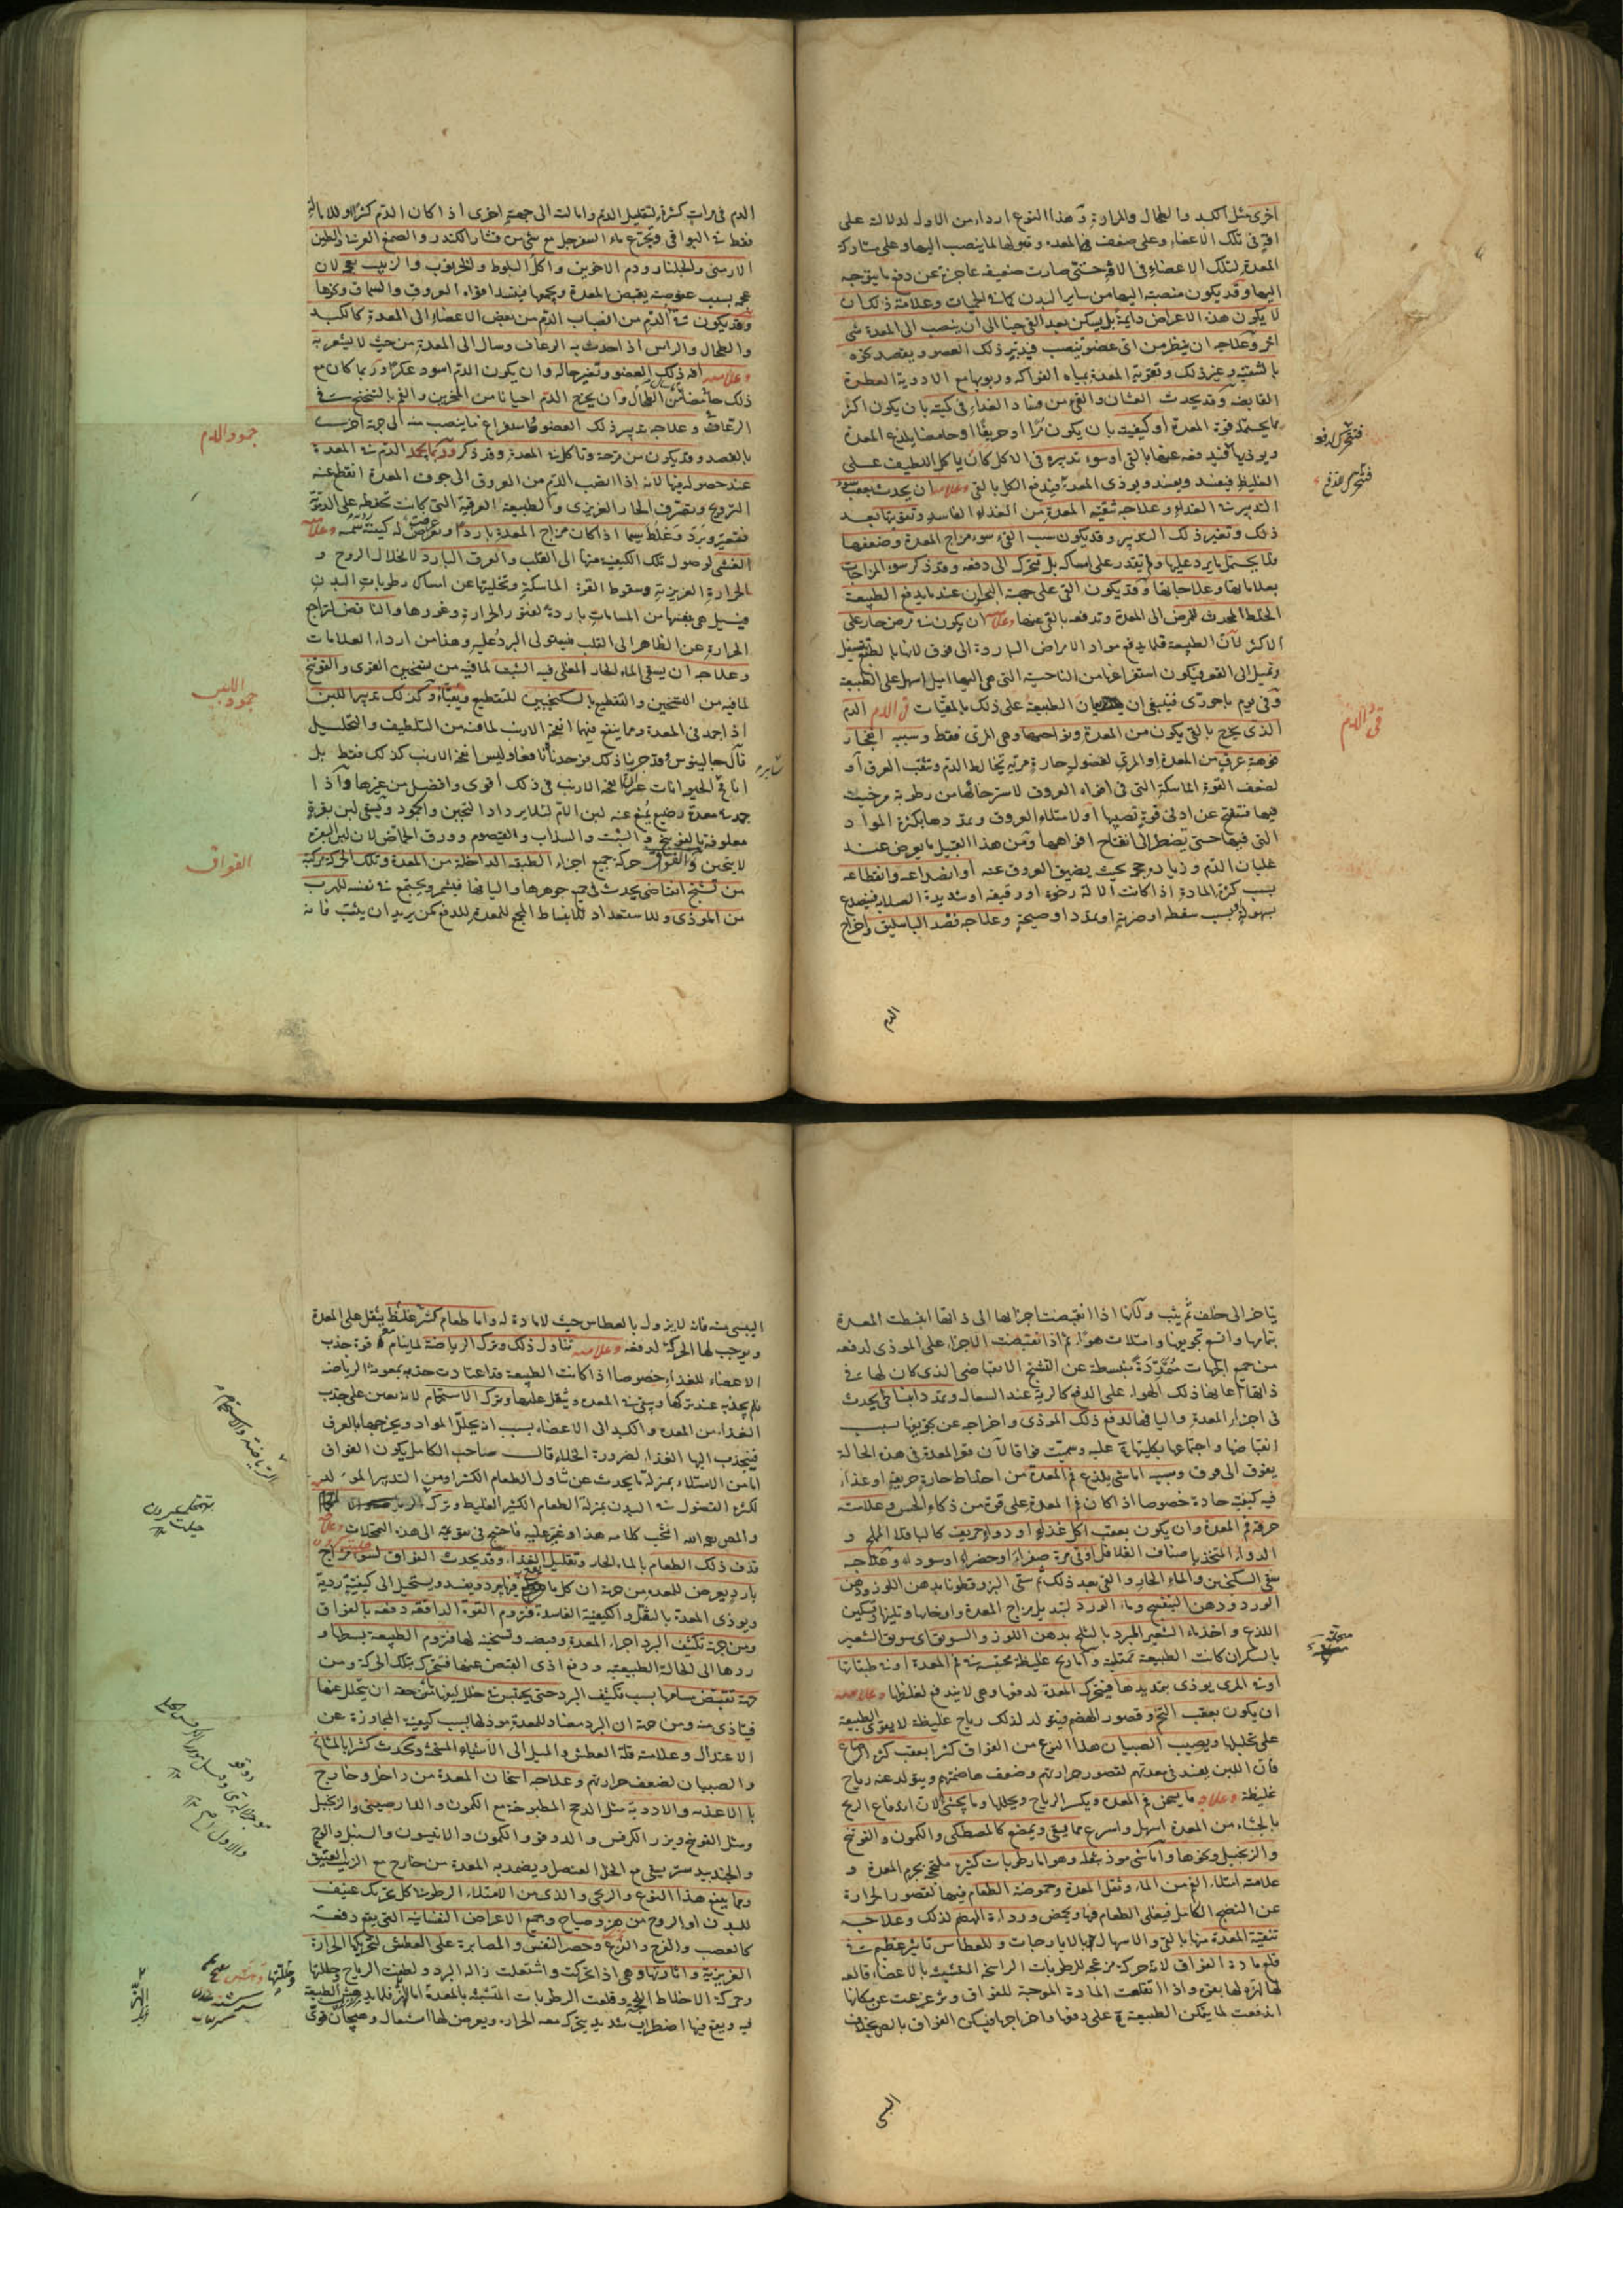 اخرى مثل الكبد والطحال والمرارة وهذا النوع اردأ من الاول لدلالته على
افة في تلك الاعضاء وعلى ضعف فم المعدة وقبولها لما ينصب اليها وعلى مشاركة
المعدة لتلك الاعضاء في الافة حتى صارت ضعيفة عاجزة عن دفع ما يتوجه
اليها وقد يكون منصبة اليها من ساير البدن كما في الحميات وعلامة ذلك ان
لا يكون هذه الاعراض دايمة بل يسكن بعد القئ حينا الى ان ينصب الى المعدة شئ
اخر وعلاجه ان ينظر من اى عضو ينصب فيدبر ذلك العضو ويقصد نحوه
بالتنقية وغير ذلك وتقوية المعدة بمياه الفواكه وربوبها مع الادوية العطرة
القابضة وقد يحدث الغثيان والقئ من فساد الغذاء في كميته بان يكون اكثر
مما يحتمله قوة المعدة او كيفيته بان يكون مرا او حريفا او حامضا يلذع المعدة
ويوذيها فيدفعه عنها بالقئ او سوء تدبيره في الاكل كان ياكل اللطيف على
الغليظ فيفسد ويفسده ويوذى المعدة فيدفع الكل بالقئ وعلامته ان يحدث بعقب سوء
التدبير في الغذاء وعلاجه تنقية المعدة من الغذاء الفاسد وتقويتها بعد
ذلك وتغير ذلك التدبير وقد يكون سبب القئ سوء مزاج المعدة وضعفها
فلا يحتمل ما يرد عليها ولم يقدر على امساكه بل تتحرك الى دفعه وقد ذكر سوء المزاجات
بعلاماتها وعلاجاتها وقد يكون القئ على جهة البحران عند ما يدفع الطبيعة
الخلط المحدث للمرض الى المعدة وتدفعه بالقئ عنها وعلامته ان يكون في مرض حار على
الاكثر لان الطبيعة قلما يدفع مواد الامراض الباردة الى فوق لانها بالطبع تثقيل
وتميل الى القعر فيكون استفراغها من الناحية التى هى اليها اميل اسهل على الطبيعة
وفى يوم باحورى فينبغى ان يعان الطبيعة على ذلك بالمقيات قئ الدم الدم
الذى يخرج بالقئ يكون من المعدة ونواحيها وهى المرى فقط وسببه انفجار
فوهة عرق من المعدة او المرى لفضول حارة مرية تخالط الدم وتثقب العرق او
لضعف القوة الماسكة التى في افواه العروق لاسترخائها من رطوبة مرخية
فيها فتنفتح عن ادنى قوة تصيبها او لامتلاء العروق وتمددها بكثرة المواد
التى فيها حتى تضطر الى انفتاح افواهها ومن هذا القبيل ما يعرض عند
غليان الدم وزيادة حجمه بحيث يضيق العروق عنه او انصداعه وانقطاعه
بسبب كثرة المادة اذا كانت الالة رخوة او رقيقة او شديدة الصلابة فينصدع
بسهولة او بسبب سقطة او ضربة او تمدد او صيحة وعلاجه فصد الباسليق واخراج
الدم
فتتحرك لدفعه
فتتحرك للدفع
قئ الدم
الدم في مرات كثيرة لتقليل الدم وامالته الى جهة اخرى اذا كان الدم كثيرا
فقط في البواقى وتجرع ماء السفرجل مع شئ من قشار الكندر والصمغ العربى والطين
الارمنى والجلنار ودم الاخوين واكل البلوط والخرنوب والزبيب بعجمه لان
عجمه بسبب عفوصته يقبض المعدة ويجمعها فينسد افواه العروق والسماق ونحوها
وقد يكون قئ الدم من انصباب الدم من بعض الاعضاء الى المعدة كالكبد
والطحال والراس اذا حدث به الرعاف وسال الى المعدة من حيث لا يشعر به
وعلامته افة ذلك العضو وتغير حاله وان يكون الدم اسود عكرا وربما كان مع
ذلك حامضا في الطحال وان يخرج الدم احيانا من المنخرين والفم بالتنخع في
الرعاف وعلاجه تدبير ذلك العضو واستفراغ ما ينصب منه الى جهة اخرى
بالفصد وقد يكون من قرحة وتاكل في المعدة وقد ذكر وربما يجمد الدم في المعدة
عند حصوله فيها لانه اذا انصب الدم من العروق الى جوف المعدة انقطع عنه
الترويح وتصرف الحار الغريزى والطبيعة العرقية التى كانت تحفظه على الدموية
فتغير وبرد وغلظ سيما اذا كان مزاج المعدة باردا وتعرض له كيفية سمية وعلامته
الغشى لوصول تلك الكيفية منها الى القلب والعرق البارد لانحلال الروح و
الحرارة الغريزية وسقوط القوة الماسكة وتخليتها عن امساك رطوبات البدن
فيسيل هى بنفسها من المسامات باردة لفتور الحرارة وغورها والنافض لتراجع
الحرارة عن الظاهر الى القلب فيستولى البرد عليه وهذا من اردا العلامات
وعلاجه ان يسقى الماء الحار المغلى فيه الشبت لما فيه من تسخين القوى والفوتنج
لما فيه من التسخين والتقطيع بالسكنجبين للتقطيع ويقيا وكذلك تدبير اللبن
اذا جمد في المعدة ومما ينفع فيهما انفحة الارنب لما فيه من التلطيف والتحليل
قال جالينوس وقد جربنا ذلك فوجدناه نافعا وليس انفحة الارنب كذلك فقط بل
انافح الحيوانات غير ان انفحة الارنب في ذلك اقوى وافضل من غيرها واذا
جمد في معدة رضيع يمنع عنه لبن الام لئلا يزداد التجبن والجمود ويسقى لبن بقرة
معلوفة بالفوتنج والشبت والسذاب والقيصوم وورق الحماض لان لبن البقرة
لا يتجبن والفواق حركة جميع اجزاء الطبقة الداخلة من المعدة وتلك الحركة مركبة
من تشنج انقباضى يحدث في جميع جوهرها واليافها فيشمر ويجتمع في نفسه للهرب
من الموذى وللاستعداد للانبساط المهيج للمعدة للدفع كمن يريد ان يثب فانه
جمود الدم
جمود اللبن
الفواق
يتاخر الى خلف ثم يثب ولانها اذا انقبضت اجزائها الى ذاتها انبسطت المعدة
بتمامها واتسع تجويفها وامتلات هواء ثم اذا انقبضت الاجزاء على الموذى لدفعه
من جميع الجهات متمددة منبسطة عن التشنج الانقباضى الذى كان لها في
ذاتها اعانها ذلك الهواء على الدفع كالرية عند السعال وتمدد انبساطى يحدث
فى اجزاء المعدة واليافها لدفع ذلك الموذى واخراجه عن تجويفها بسبب
انقباضها واجتماعها بكليتها عليه وسميت فواقا لان فم المعدة فى هذه الحالة
يفوق الى فوق وسببه اما شئ يلذع فم المعدة من اخلاط حارة حريفة او غذاء
فيه كيفية حادة خصوصا اذا كان فم المعدة على قوة من ذكاء الحس وعلامته
حرقة فم المعدة وان يكون بعقب اكل غذاء او دواء حريف كالباقلا المملح و
الدواء المتخذ باصناف الفلافل او قئ مرة صفراء او خضراء او سوداء وعلاجه
سقى السكنجبين والماء الحار والقئ بعد ذلك ثم سقى البزرقطونا بدهن اللوز ودهن
الورد ودهن البنفسج وماء الورد لتبديل مزاج المعدة وارخائها وتليينها وتسكين
اللذع واخذ ماء الشعير المبرد بالثلج بدهن اللوز والسويق اى سويق الشعير
بالسكر ان كانت الطبيعة ممتلية واما ريح غليظة محتبسة في فم المعدة او في طبقاتها
او في المرى يوذى بتمديدها فيتحرك المعدة لدفعها وهى لا يندفع لغلظها وعلامته
ان يكون بعقب التخم وقصور الهضم فيتولد لذلك رياح غليظة لا يقوى الطبيعة
على تحليلها ويصيب الصبيان هذا النوع من الفواق كثيرا بعقب كثرة الرضاع
فان اللبن يفسد في معدتهم لقصور حرارتهم وضعف هاضمتهم ويتولد عنه رياح
غليظة وعلاجه ما يسخن فم المعدة ويكسر الرياح ويحللها وما يجشئ لان اندفاع الريح
بالجشاء من المعدة اسهل واسرع مما يسقى ويمضغ كالمصطكى والكمون والفوتنج
والزنجبيل ونحوها واما شئ موذ بثقله وهو اما رطوبات كثيرة ملتحجة بجرم المعدة و
علامته امتلاء الفم من الماء وثقل المعدة وحموضة الطعام فيها لقصور الحرارة
عن النضج الكامل فيغلى الطعام فيها ويحمض ورداءة الهضم لذلك وعلاجه
تنقية المعدة منها بالقئ والاسهال بالايارجات وللعطاس تاثير عظيم في
قلع مادة الفواق لانه حركة مزعجة للرطوبات الراسخة المتشبثة بالاعضاء قالعة
لها لهزه لها بعنف واذا انقلعت المادة الموجبة للفواق وتزعزعت عن مكانها
اندفعت لما يتمكن الطبيعة على دفعها واخراجها فيسكن الفواق بالضرورة بخلاف
اليبسى
اليبسى منه فانه لا يزول بالعطاس حيث لا مادة له واما طعام كثير غليظ يثقل على المعدة
ويوجب لها الحركة لدفعه وعلامته تناول ذلك وترك الرياضة لما ينام معها قوة جذب
الاعضاء للغذاء خصوصا اذا كانت الطبيعة قد اعتادت جذبه بمعونة الرياضة
فلم يجذبه عند تركها وبقى في المعدة ويثقل عليها وترك الاستحمام لانه يعين على جذب
الغذاء من المعدة والكبد الى الاعضاء بسبب انه يحلل المواد ويخرجها بالعرق
فينجذب اليها الغذاء لضرورة الخلاء قال صاحب الكامل يكون الفواق
اما من الامتلاء بمنزلة ما يحدث عن تناول الطعام الكثير او من التدبير المولد
لكثرة الفضول في البدن بمنزلة الطعام الكثير الغليظ وترك
والمص رحمه الله انتخب كلامه هذا وغير عليه فاحتيج فى توجيهه الى هذه التمحلات وعلاجه
قذف ذلك الطعام بالماء الحار وتقليل الغذاء وقد يحدث الفواق لسوء مزاج
بارد يعرض للمعدة من جهة ان كل ما يقع فيها يبرد ويفسد ويستحيل الى كيفية ردية
ويوذى المعدة بالثقل والكيفية الفاسدة فتروم القوة الدافعة دفعه بالفواق
ومن جهة تكثيف البرد اجزاء المعدة وقبضه وتشنيجه لها فتروم الطبيعة بسطها و
ردها الى الحالة الطبيعية ودفع اذى القبض عنها فتتحرك بتلك الحركة ومن
جهة تقبض مسامها بسبب تكثيف البرد حتى يحتبس في خلل ليفها ما من حقه ان يتحلل عنها
فيتاذى منه ومن جهة ان البرد مضاد للمعدة موذ لها بسبب كيفيته المجاوزة عن
الاعتدال وعلامته قلة العطش والميل الى الاشياء المسخنة ويحدث كثيرا بالمشايخ
والصبيان لضعف حرارتهم وعلاجه اسخان المعدة من داخل وخارج
بالاغذية والادوية مثل الدجج المطبوخة مع الكمون والدارصينى والزنجبيل
ومثل الفوتنج وبزر الكرفس والدوقو والكمون والانيسون والسنبل والوج
والجندبيدستر يسقى مع الخل العنصل ويضمد به المعدة من خارج مع الزيت العتيق
ومما ينفع هذا النوع والريحى والذى من الامتلاء الرطوبى كل تحريك عنيف
للبدن او الروح من هز وصياح وجميع الاعراض النفسانية التى يقع دفعة
كالغضب والفرح والفزع وحصر النفس والمصابرة على العطش لتحريكها الحرارة
الغريزية واثارتها وهى اذا تحركت واشتعلت زال البرد ولطفت الرياح وحللتها
وحركة الاخلاط اللحجة وقلعت الرطوبات المتشبثة بالمعدة اما الهز فلما يدهش الطبيعة
فيه ويقع فيها اضطراب شديد يتحرك معه الحرارة ويعرض لها اشتعال وهيجان قوى